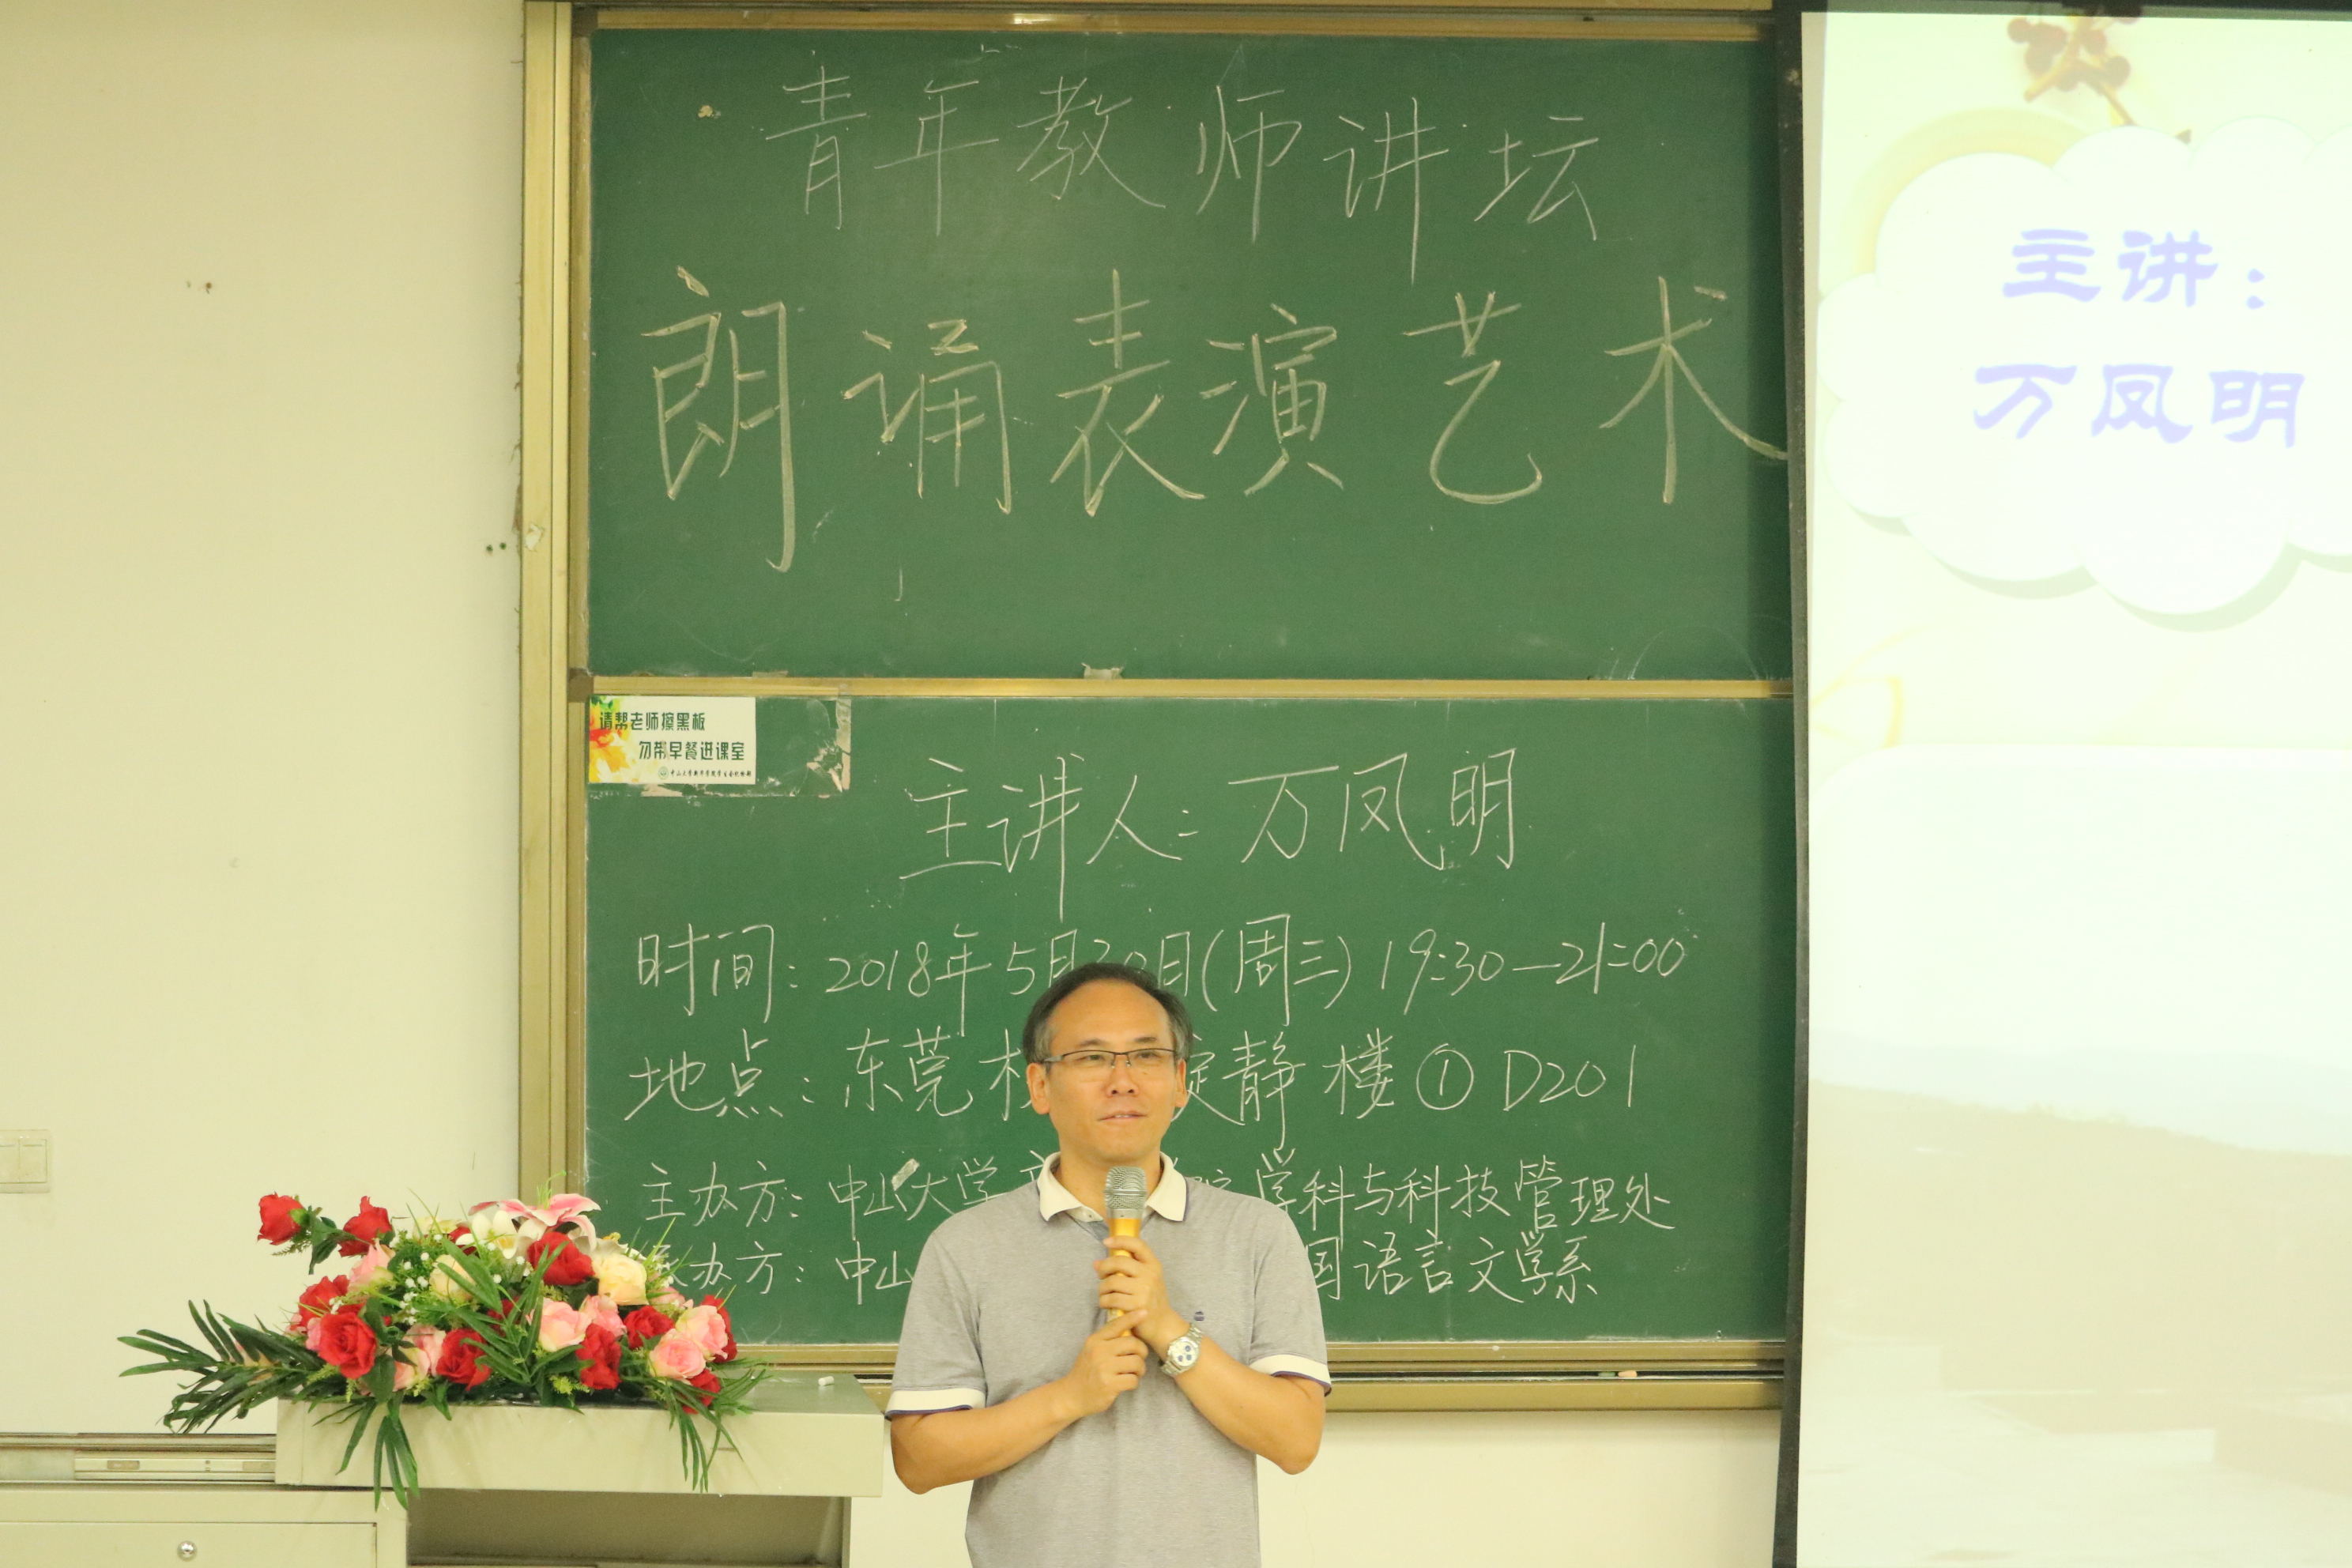 青年教师讲坛
朗诵表演艺术
请帮老师擦黑板
勿带早餐进课室
主讲人：万凤明
时间：2018年5月30日(周三) 19:30—21:00
地点：东莞 静楼①D201
主办方：中山大学 学科与科技管理处
承办方：中山 国语言文学系
主讲：
万凤明